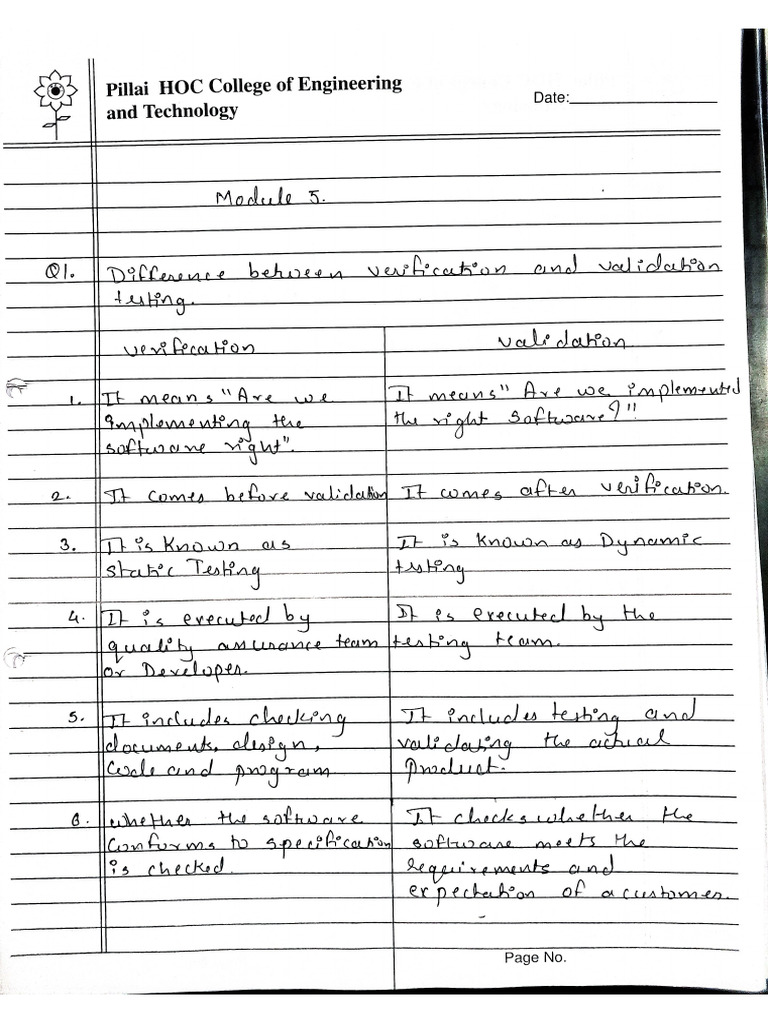 Pillai HOC College of Engineering
and Technology
Date:
Module 5.
Q1. Difference between verification and validation
testing.
verification
validation
1. It means "Are we
implementing the
software right".
It means "Are we implemented
the right software?"
2. It comes before validation
It comes after verification.
3. It is known as
Static Testing
It is known as Dynamic
testing
4. It is executed by
quality assurance team
or Developer.
It is executed by the
testing team.
5. It includes checking
documents, design,
code and program
It includes testing and
validating the actual
product.
6. whether the software
conforms to specification
is checked.
It checks whether the
software meets the
requirements and
expectation of a customer.
Page No.